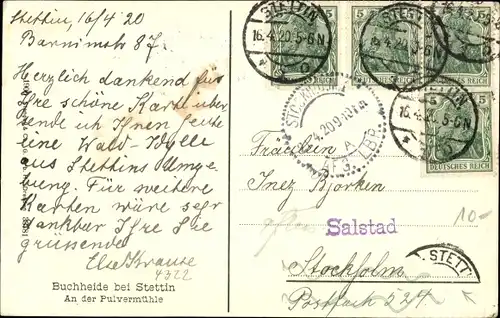 Stettin, 16/4 20
Barnimstr 87.
Herzlich dankend für
Ihre schöne Karte über
sende ich Ihnen heute
eine Wald-Idylle
aus Stettins Umge
bung. Für weitere
Karten wäre sehr
dankbar Ihre Sie
grüssende
Else Krause
4322
Buchheide bei Stettin
An der Pulvermühle
STETTIN
16.4.20.5-6N
STETTIN
5
5
5
DEUTSCHES REICH
DEUTSCHES REICH
STETTIN
16.4.20.5-6N
5
DEUTSCHES REICH
4.20.9-10
A
LBP
Fräulein
Inez Björken
Salstad
10-
Stockholm
STETT
Postfach 524